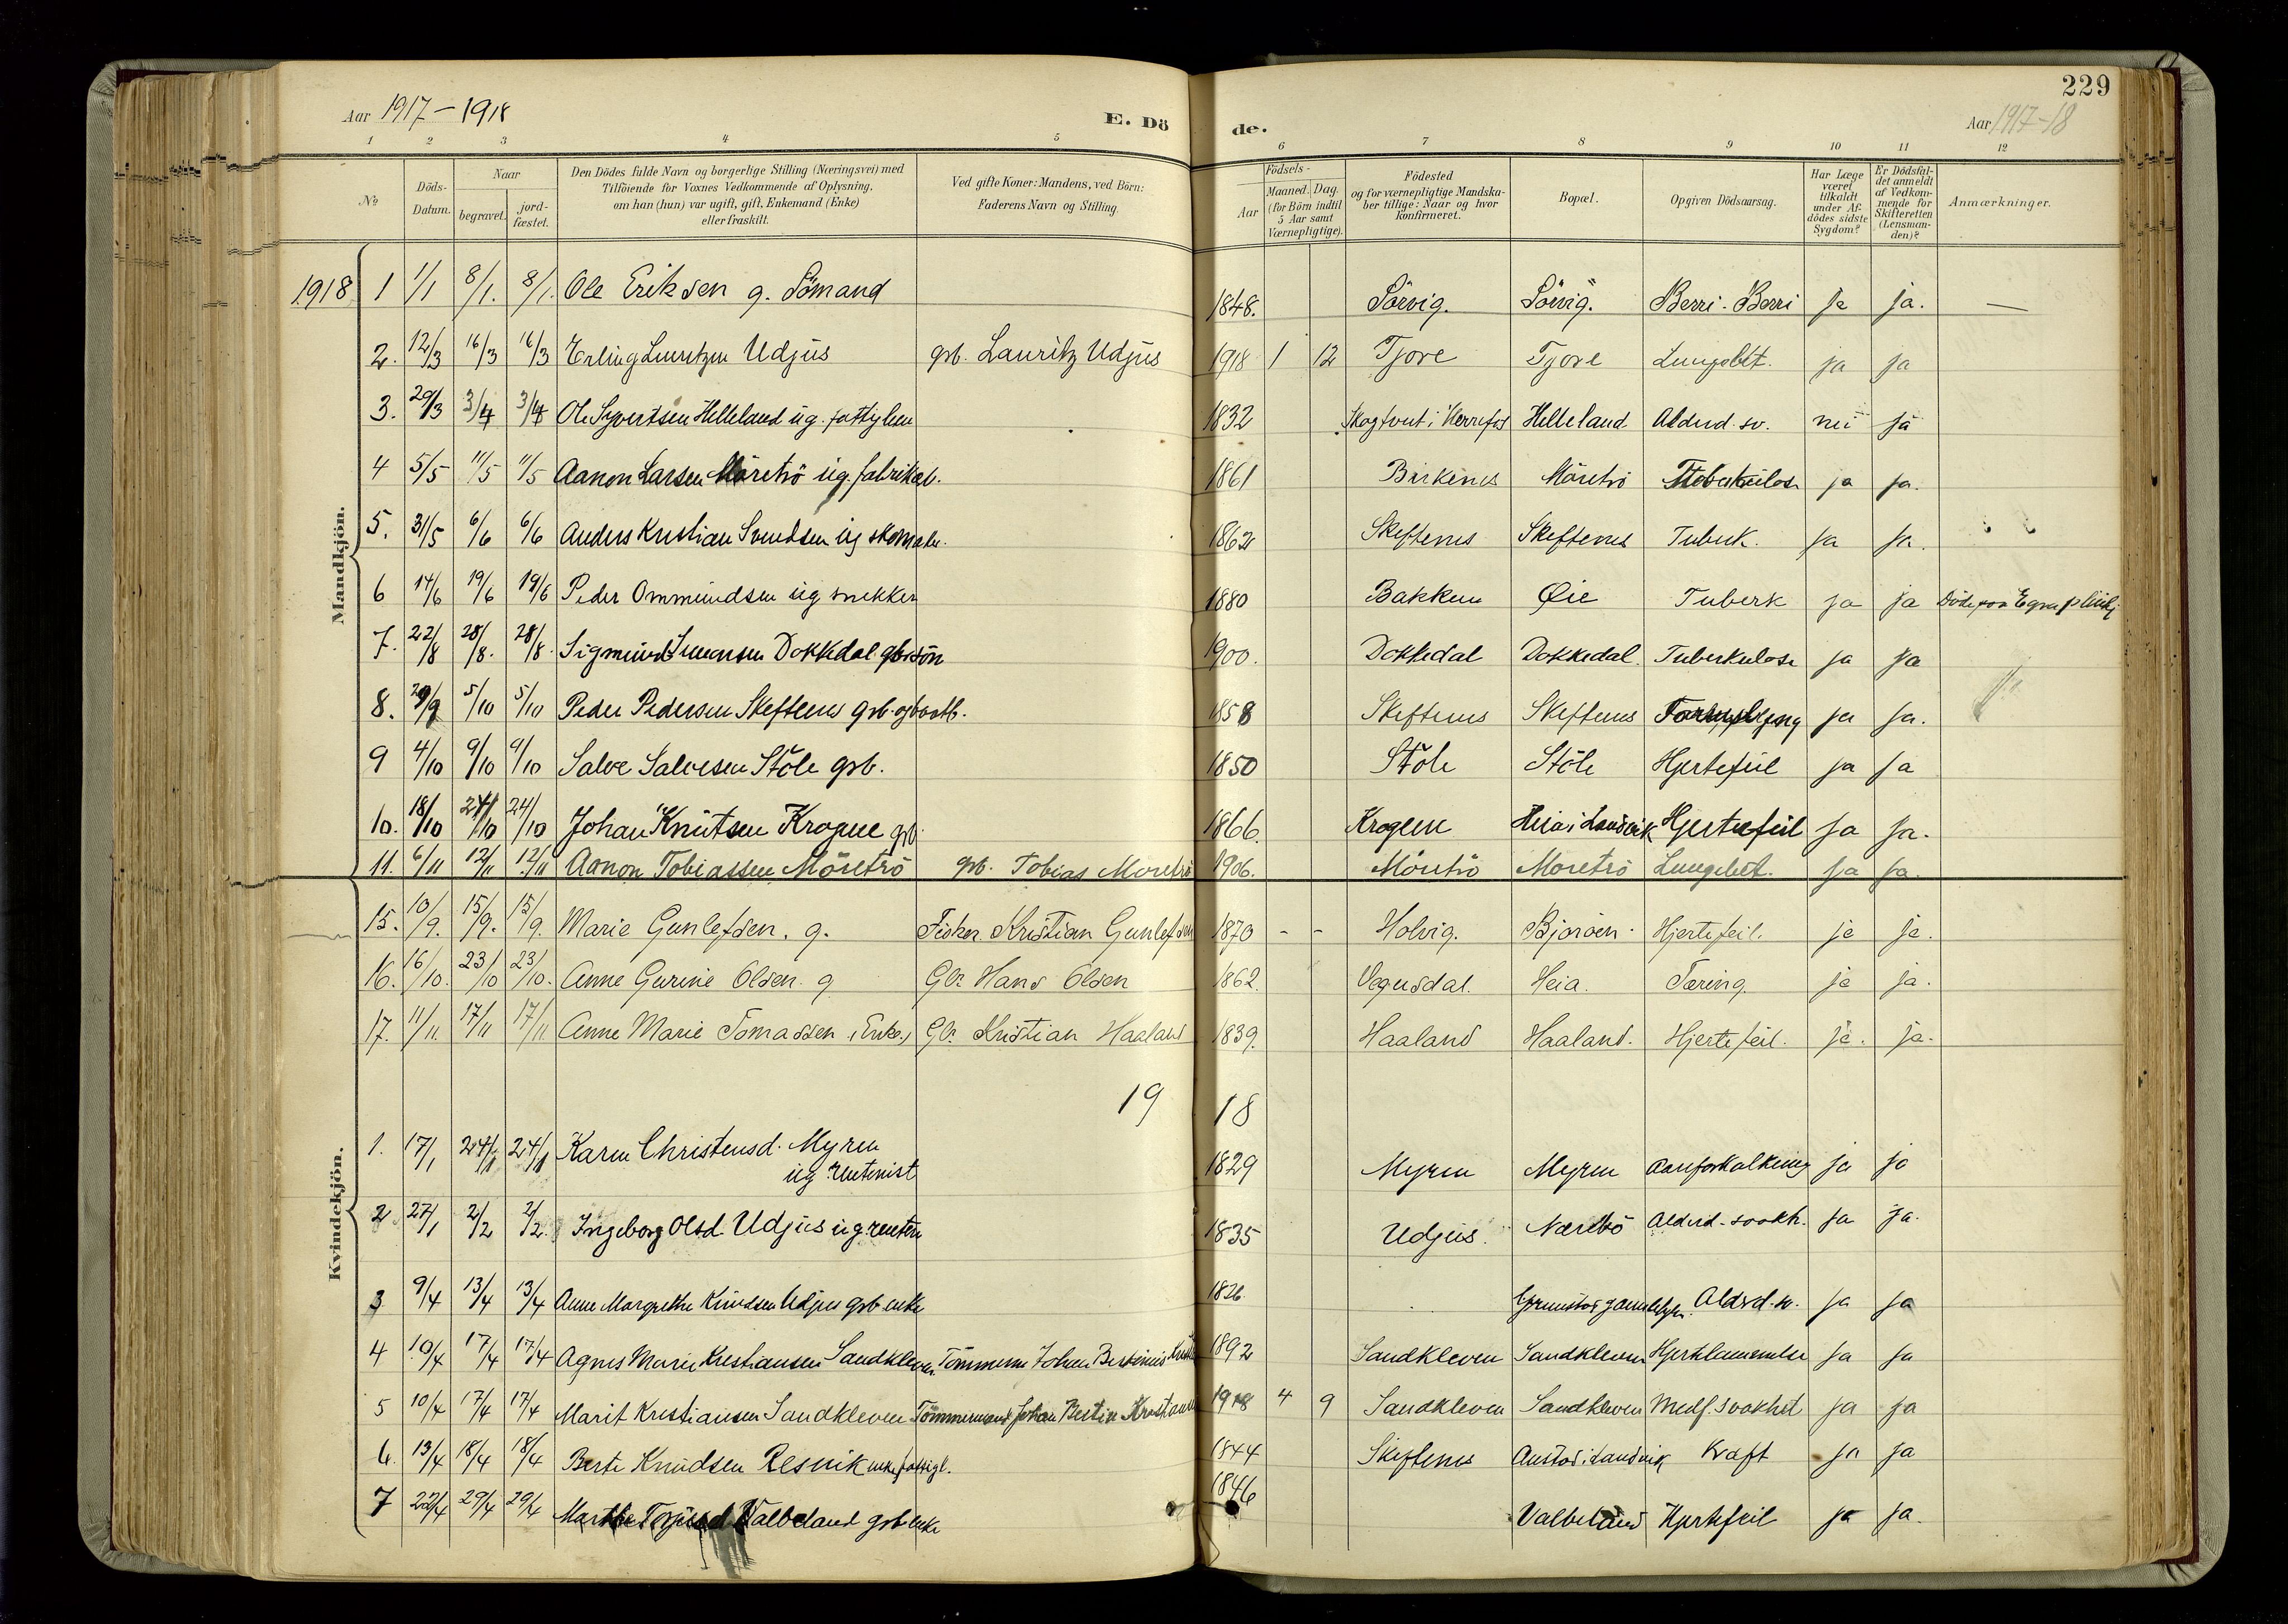 229
Aar 1917-1918 E. Dö de. Aar 1917-18
1 2 3 4 5 6 7 8 9 10 11 12
№ Döds-Datum. Naar begravet. jord-fæstet. Den Dödes fulde Navn og borgerlige Stilling (Næringsvei) med Tilföiende for Voxnes Vedkommende af Oplysning, om han (hun) var ugift, gift, Enkemand (Enke) eller fraskilt. Ved gifte Koner: Mandens, ved Börn: Faderens Navn og Stilling. Födsels- Aar Maaned. Dag. (for Börn indtil 5 Aar samt Værnepligtige). Födested og for værnepligtige Mandska-ber tillige: Naar og hvor konfirmeret. Bopæl. Opgiven Dödsaarsag. Har Læge været tilkaldt under Af-dödes sidste Sygdom? Er Dödsfal-det anmeldt af Vedkom-mende for Skifteretten (Lensman-den)? Anmærkninger.
Mandkjön.
1918 1 1/1 8/1. 8/1. Ole Eriksen g. Sömand 1848. Sörvig. Sörvig. Berri-Berri ja ja. —
2. 12/3 16/3 16/3 Erling Lauritzen Udjus grb. Lauritz Udjus 1918 1 12 Tjore Tjore Lungebet. ja ja
3. 29/3 3/4 3/4 Ole Syvertsen Helleland ug. 1832 i Herrefos Helleland Alderd. sv. nei ja
4 5/5 11/5 11/5 Aanon Larsen Möretrö ug. fabrikarb. 1861 Birkenes Möretrö ja ja.
5. 31/5 6/6 6/6 Anders Kristian Svendsen ug skomaker. 1862 Skeftenes Skeftenes Tuberk. ja ja.
6 14/6 19/6 19/6 Peder Ommundsen ug snekker 1880 Bakken Øie Tuberk ja ja Döde paa
7. 22/8 28/8. 28/8. Sigmund Dokkedal grb.sön 1900. Dokkedal Dokkedal. Tuberkulose ja ja
8. 29/9 5/10 5/10 Peder Pedersen Skeftenes grb. og 1858 Skeftenes Skeftenes ja ja.
9 4/10 9/10 9/10 Salve Salvesen Stöle grb. 1850 Stöle Stöle Hjertefeil ja ja
10. 18/10 24/10 24/10 Johan Knutsen Krogene grb. 1866. Krogene Heia i Landvik Hjertefeil ja ja.
11. 6/11 12/11 12/11 Aanon Tobiassen Möretrö grb. Tobias Moretrö 1906. Möretrö Moretrö Lungebet. ja ja.
Kvindekjön.
15. 10/9. 15/9. 15/9. Marie Gunlefsen. g. Fisker. Kristian Gunlefsen 1870 - - Holvig. Bjoröen. Hjertefeil. ja ja.
16. 16/10. 23/10 23/10. Anne Gurine Olsen. g Gbr. Hans Olsen 1862. Vegusdal. Heia. Tæring. ja ja.
17. 11/11. 17/11 17/11 Anne Marie Tomassen (Enke.) Gbr. Kristian Haaland 1839. Haaland Haaland. Hjertefeil. ja. ja.
19 18
1. 17/1 24/1 24/1 Karen Christensd. Myren
ug rentenist 1829 Myren Myren Aareforkalkning ja ja
2 27/1 2/2 2/2. Ingeborg Olsd. Udjus ug renten 1835 Udjus. Næsebö Alderd-svakh. ja ja.
3 9/4 13/4 13/4 Anne Margrethe Knudsen Udjus grb enke 1826 Grimstad gamlehjem. Alderd. sv. ja ja
4 10/4 17/4 17/4 Agnes Marie Kristiansen Sandkleven Tömmerm Johan 1892 Sandkleven Sandkleven Hjertelammelse ja ja
5 10/4 17/4 17/4 Marit Kristiansen Sandkleven Tömmermand Johan Bertin Kristiansen 1918 4 9 Sandkleven Sandkleven Medf. svakhet ja ja
6. 13/4 18/4 18/4 Berte Knudsen Resvik enke fattigl. 1844 Skeftenes Austad i Landvik Kræft ja ja
7 22/4 29/4 29/4 Marthe Valbeland grb enke 1846 Valbeland Hjertefeil ja ja.